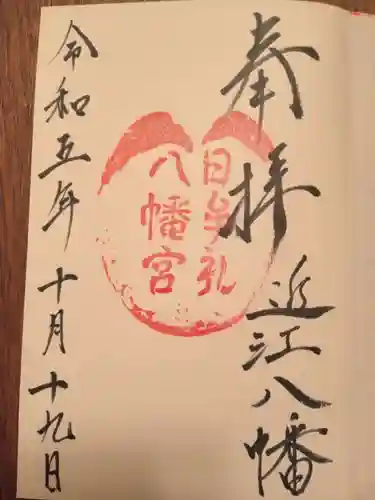 奉拝 近江八幡
日牟礼
八幡宮
令和五年十月十九日